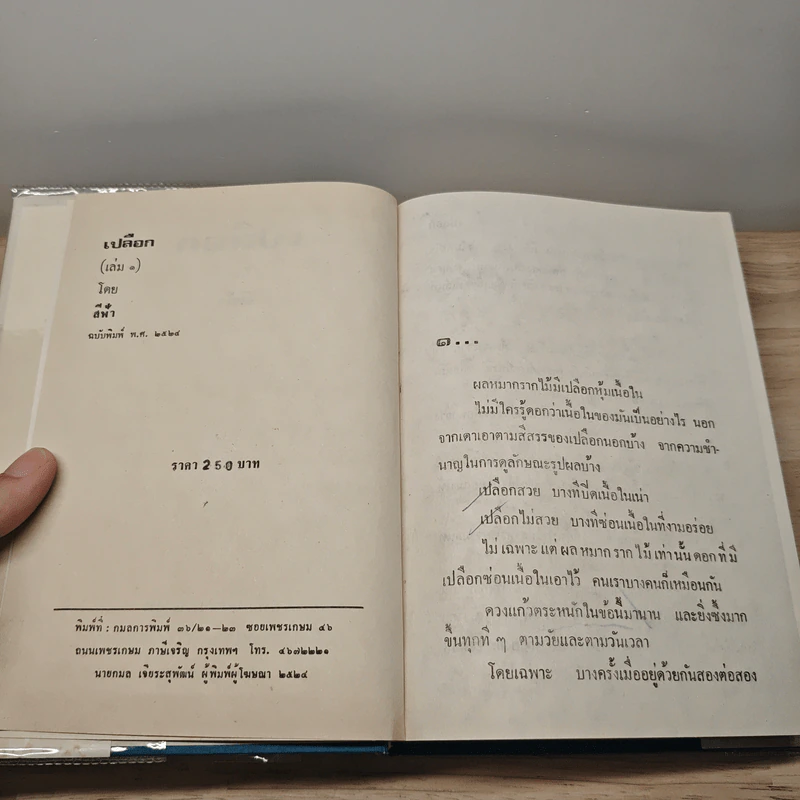 เปลือก
(เล่ม ๑)
โดย
สีฟ้า
ฉบับพิมพ์ พ.ศ. ๒๕๒๔
ราคา 250 บาท
พิมพ์ที่ : กมลการพิมพ์ ๓๖/๒๑—๒๓ ซอยเพชรเกษม ๔๖
ถนนเพชรเกษม ภาษีเจริญ กรุงเทพฯ โทร. ๔๖๗๒๒๒๑
นายกมล เจียระสุพัฒน์ ผู้พิมพ์ผู้โฆษณา ๒๕๒๔
๑...
ผลหมากรากไม้มีเปลือกหุ้มเนื้อใน
ไม่มีใครรู้ดอกว่าเนื้อในของมันเป็นอย่างไร นอก
จากเดาเอาตามสีสรรของเปลือกนอกบ้าง จากความชำ-
นาญในการดูลักษณะรูปผลบ้าง
เปลือกสวย บางทีปิดเนื้อในเน่า
เปลือกไม่สวย บางทีซ่อนเนื้อในที่งามอร่อย
ไม่เฉพาะแต่ผลหมากรากไม้เท่านั้นดอกที่มี
เปลือกซ่อนเนื้อในเอาไว้ คนเราบางคนก็เหมือนกัน
ดวงแก้วตระหนักในข้อนี้มานาน และยิ่งซึ้งมาก
ขึ้นทุกที ๆ ตามวัยและตามวันเวลา
โดยเฉพาะ บางครั้งเมื่ออยู่ด้วยกันสองต่อสอง